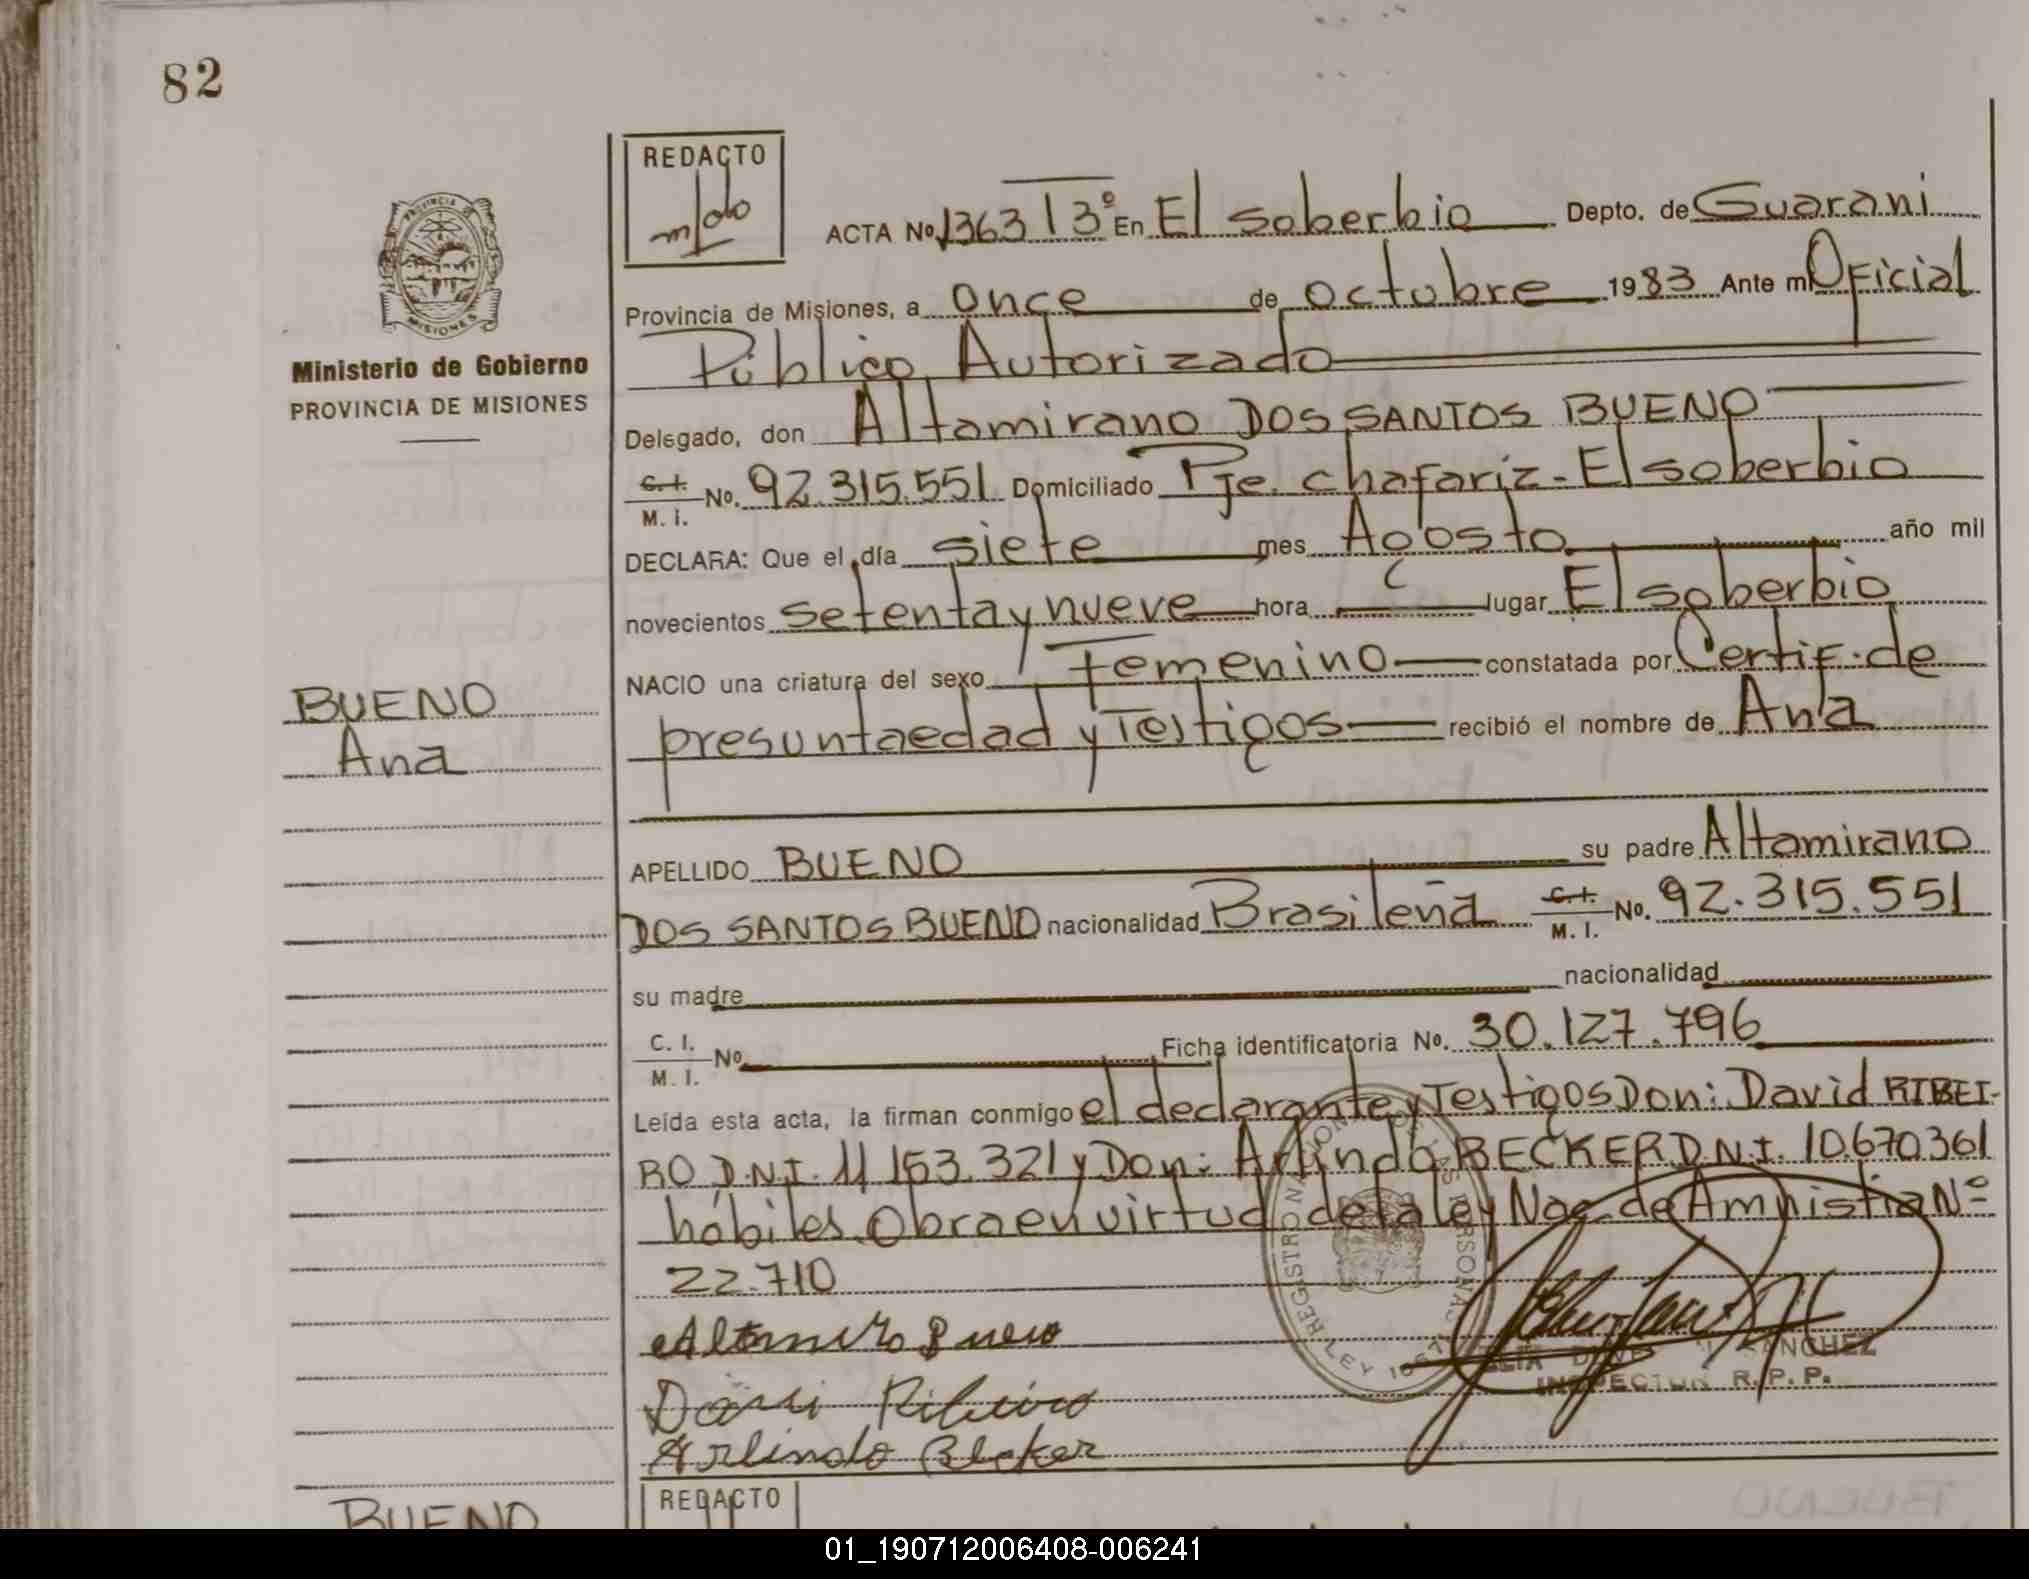 82
REDACTO
ACTA No. 1363 T 3º En El soberbio Depto. de Guarani
Provincia de Misiones, a once de octubre 1983 Ante mi Oficial
Público Autorizado
Ministerio de Gobierno
PROVINCIA DE MISIONES
Delegado, don Altamirano DOS SANTOS BUENO
C.I. M. I. No. 92.315.551 Domiciliado Pje. chafariz - El soberbio
DECLARA: Que el día siete mes Agosto año mil
novecientos setenta y nueve hora lugar El soberbio
NACIO una criatura del sexo Femenino constatada por Certif. de
presunta edad y Testigos recibió el nombre de Ana
BUENO
Ana
APELLIDO BUENO su padre Altamirano
DOS SANTOS BUENO nacionalidad Brasileña C.I. M. I. No. 92.315.551
su madre nacionalidad
C. I. M. I. No. Ficha identificatoria No. 30.127.796
Leída esta acta, la firman conmigo el declarante y Testigos Don: David RIBEI-
RO D.N.I. 11 153.321 y Don: Arlindo BECKER D.N.I. 10.670361
hábiles. Obra en virtud de la ley Nac. de Amnistia Nº
22.710
Altamiro Bueno
Davi Ribeiro
Arlindo Becker
REGISTRO NACIONAL DE LAS PERSONAS
LEY
SANCHEZ
INSPECTOR R. P. P.
REDACTO
BUENO
01_190712006408-006241